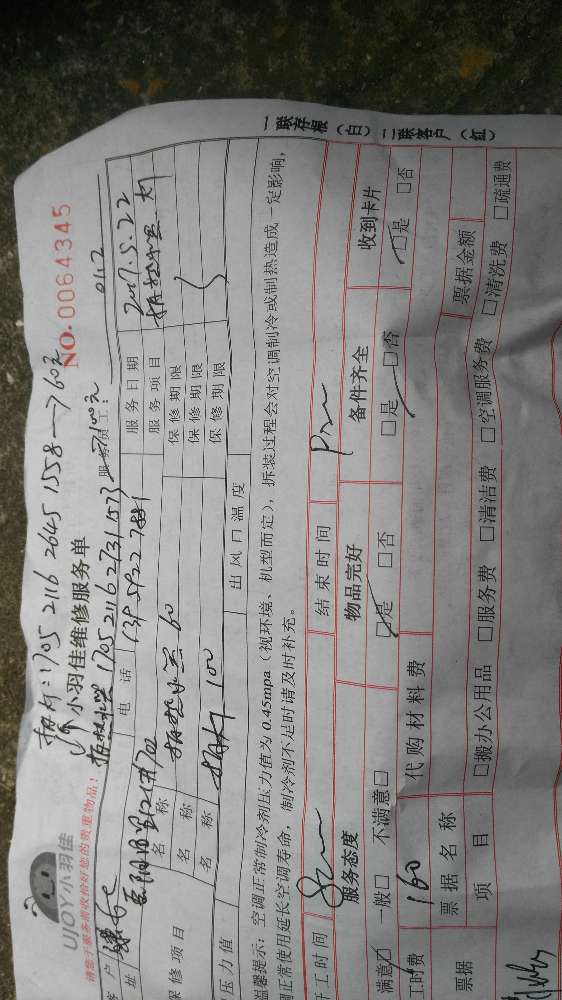 1705 2116 2645 1558 → 60元
UJOY小羽佳
小羽佳维修服务单
NO.0064345
请您于服务前收拾好您的贵重物品！
1705 2116 2731 1573
100元
012
客户
电话
139 5922 7881
服务日期
2017.5.22
地址
服务项目
保修项目
名称
60
保修期限
名称
100
保修期限
名称
保修期限
压力值
出风口温度
温馨提示：空调正常制冷剂压力值为0.45mpa（视环境、机型而定），拆装过程会对空调制冷或制热造成一定影响，
正常使用延长空调寿命，制冷剂不足时请及时补充。
开工时间
结束时间
服务态度
物品完好
备件齐全
收到卡片
满意□ 一般□ 不满意□
□是 □否
□是 □否
□是 □否
工时费
160
代购材料费
票据
票据名称
票据金额
项目
□搬办公用品 □服务费 □清洁费 □空调服务费 □清洗费 □疏通费
一联存根（白）二联客户（红）